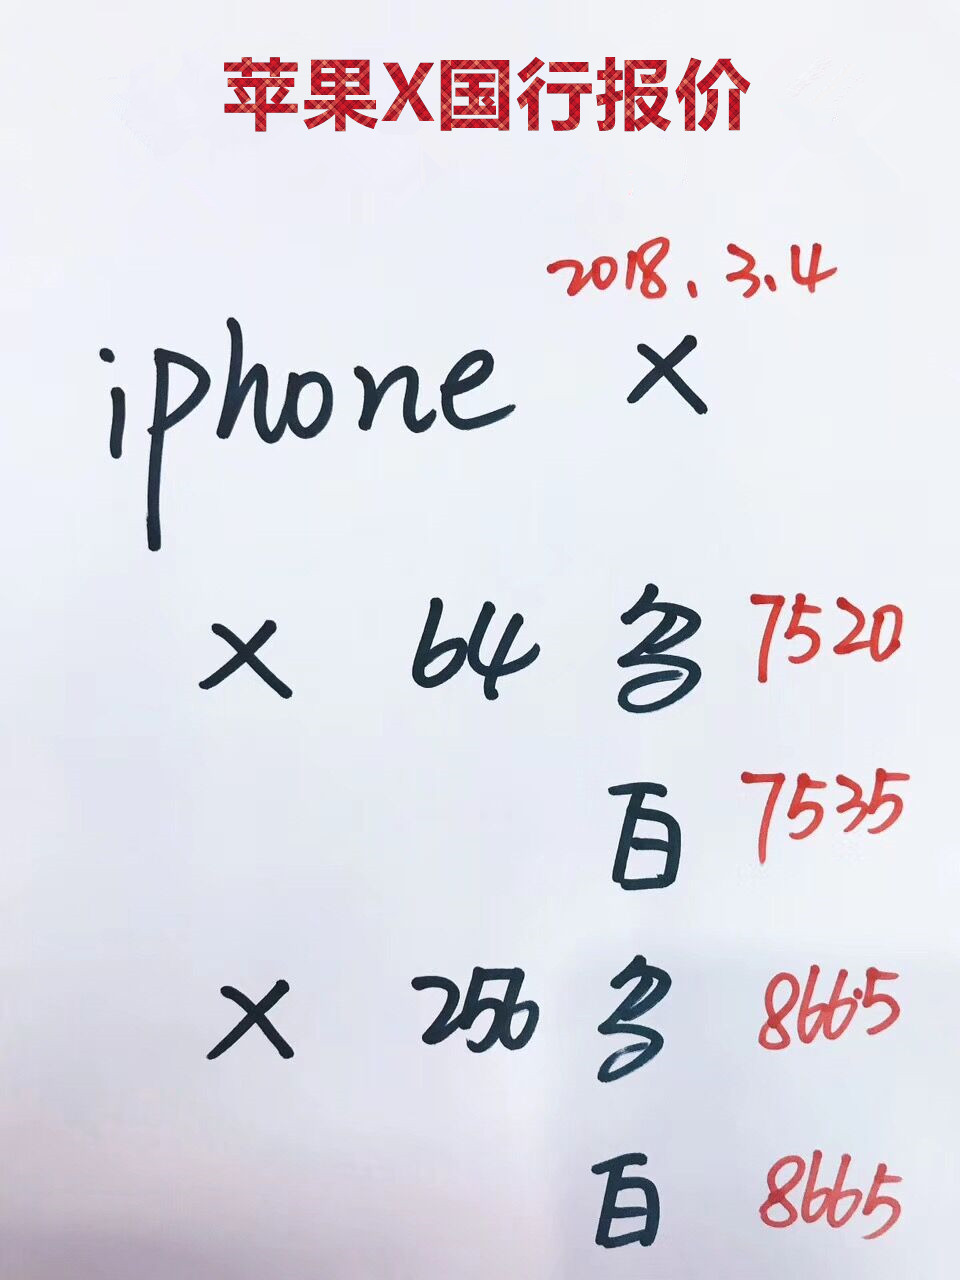 苹果X国行报价
2018.3.4
iphone X
X 64 多 7520
百 7535
X 256 多 8665
百 8665